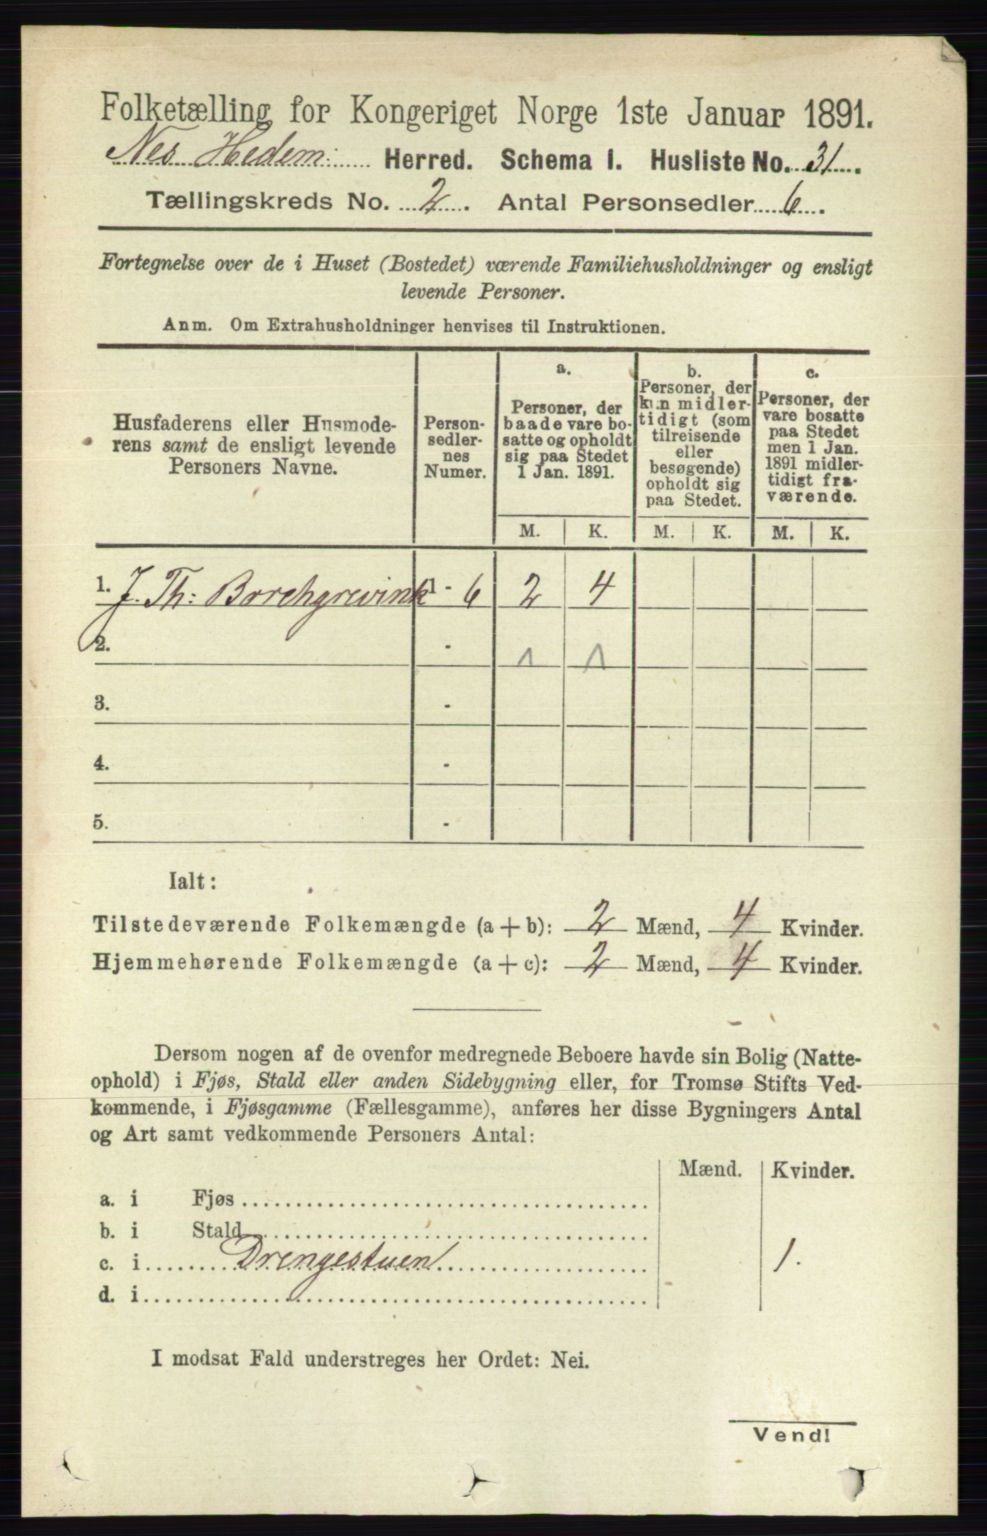 Folketælling for Kongeriget Norge 1ste Januar 1891.
Nes Hedem: Herred. Schema I. Husliste No. 31.
Tællingskreds No. 2. Antal Personsedler 6.
Fortegnelse over de i Huset (Bostedet) værende Familiehusholdninger og ensligt
levende Personer.
Anm. Om Extrahusholdninger henvises til Instruktionen.
Husfaderens eller Husmode-
rens samt de ensligt levende
Personers Navne.
Person-
sedler-
nes
Numer.
a.
Personer, der
baade vare bo-
satte og opholdt
sig paa Stedet
1 Jan. 1891.
b.
Personer, der
kun midler-
tidigt (som
tilreisende
eller
besøgende)
opholdt sig
paa Stedet.
c.
Personer, der
vare bosatte
paa Stedet
men 1 Jan.
1891 midler-
tidigt fra-
værende.
M. K. M. K. M. K.
1. J. Th: Borchgrevink 1 - 6 2 4
2. - 1 1
3. -
4. -
5. -
Ialt:
Tilstedeværende Folkemængde (a + b): 2 Mænd, 4 Kvinder.
Hjemmehørende Folkemængde (a + c): 2 Mænd, 4 Kvinder.
Dersom nogen af de ovenfor medregnede Beboere havde sin Bolig (Natte-
ophold) i Fjøs, Stald eller anden Sidebygning eller, for Tromsø Stifts Ved-
kommende, i Fjøsgamme (Fællesgamme), anføres her disse Bygningers Antal
og Art samt vedkommende Personers Antal:
Mænd. Kvinder.
a. i Fjøs
b. i Stald
c. i Drengestuen 1.
d. i
I modsat Fald understreges her Ordet: Nei.
Vend!